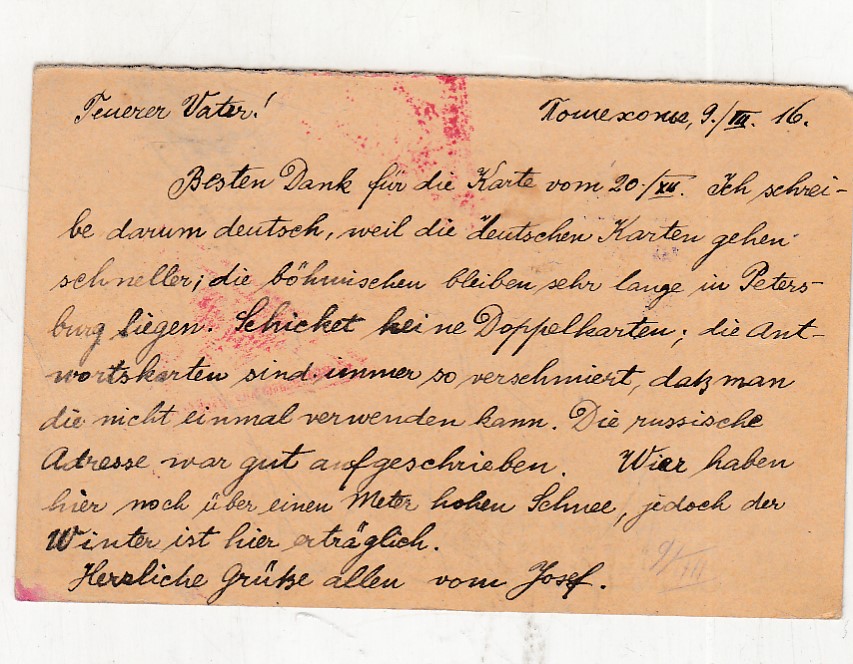 Teuerer Vater!
Пошехонье, 9./III. 16.
Besten Dank für die Karte vom 20./XII. Ich schrei-
be darum deutsch, weil die deutschen Karten gehen
schneller; die böhmischen bleiben sehr lange in Peters-
burg liegen. Schicket keine Doppelkarten; die Ant-
wortskarten sind immer so verschmiert, daß man
die nicht einmal verwenden kann. Die russische
Adresse war gut aufgeschrieben. Wier haben
hier noch über einen Meter hohen Schnee, jedoch der
Winter ist hier erträglich.
9/III
Herzliche Grüße allen vom Josef.